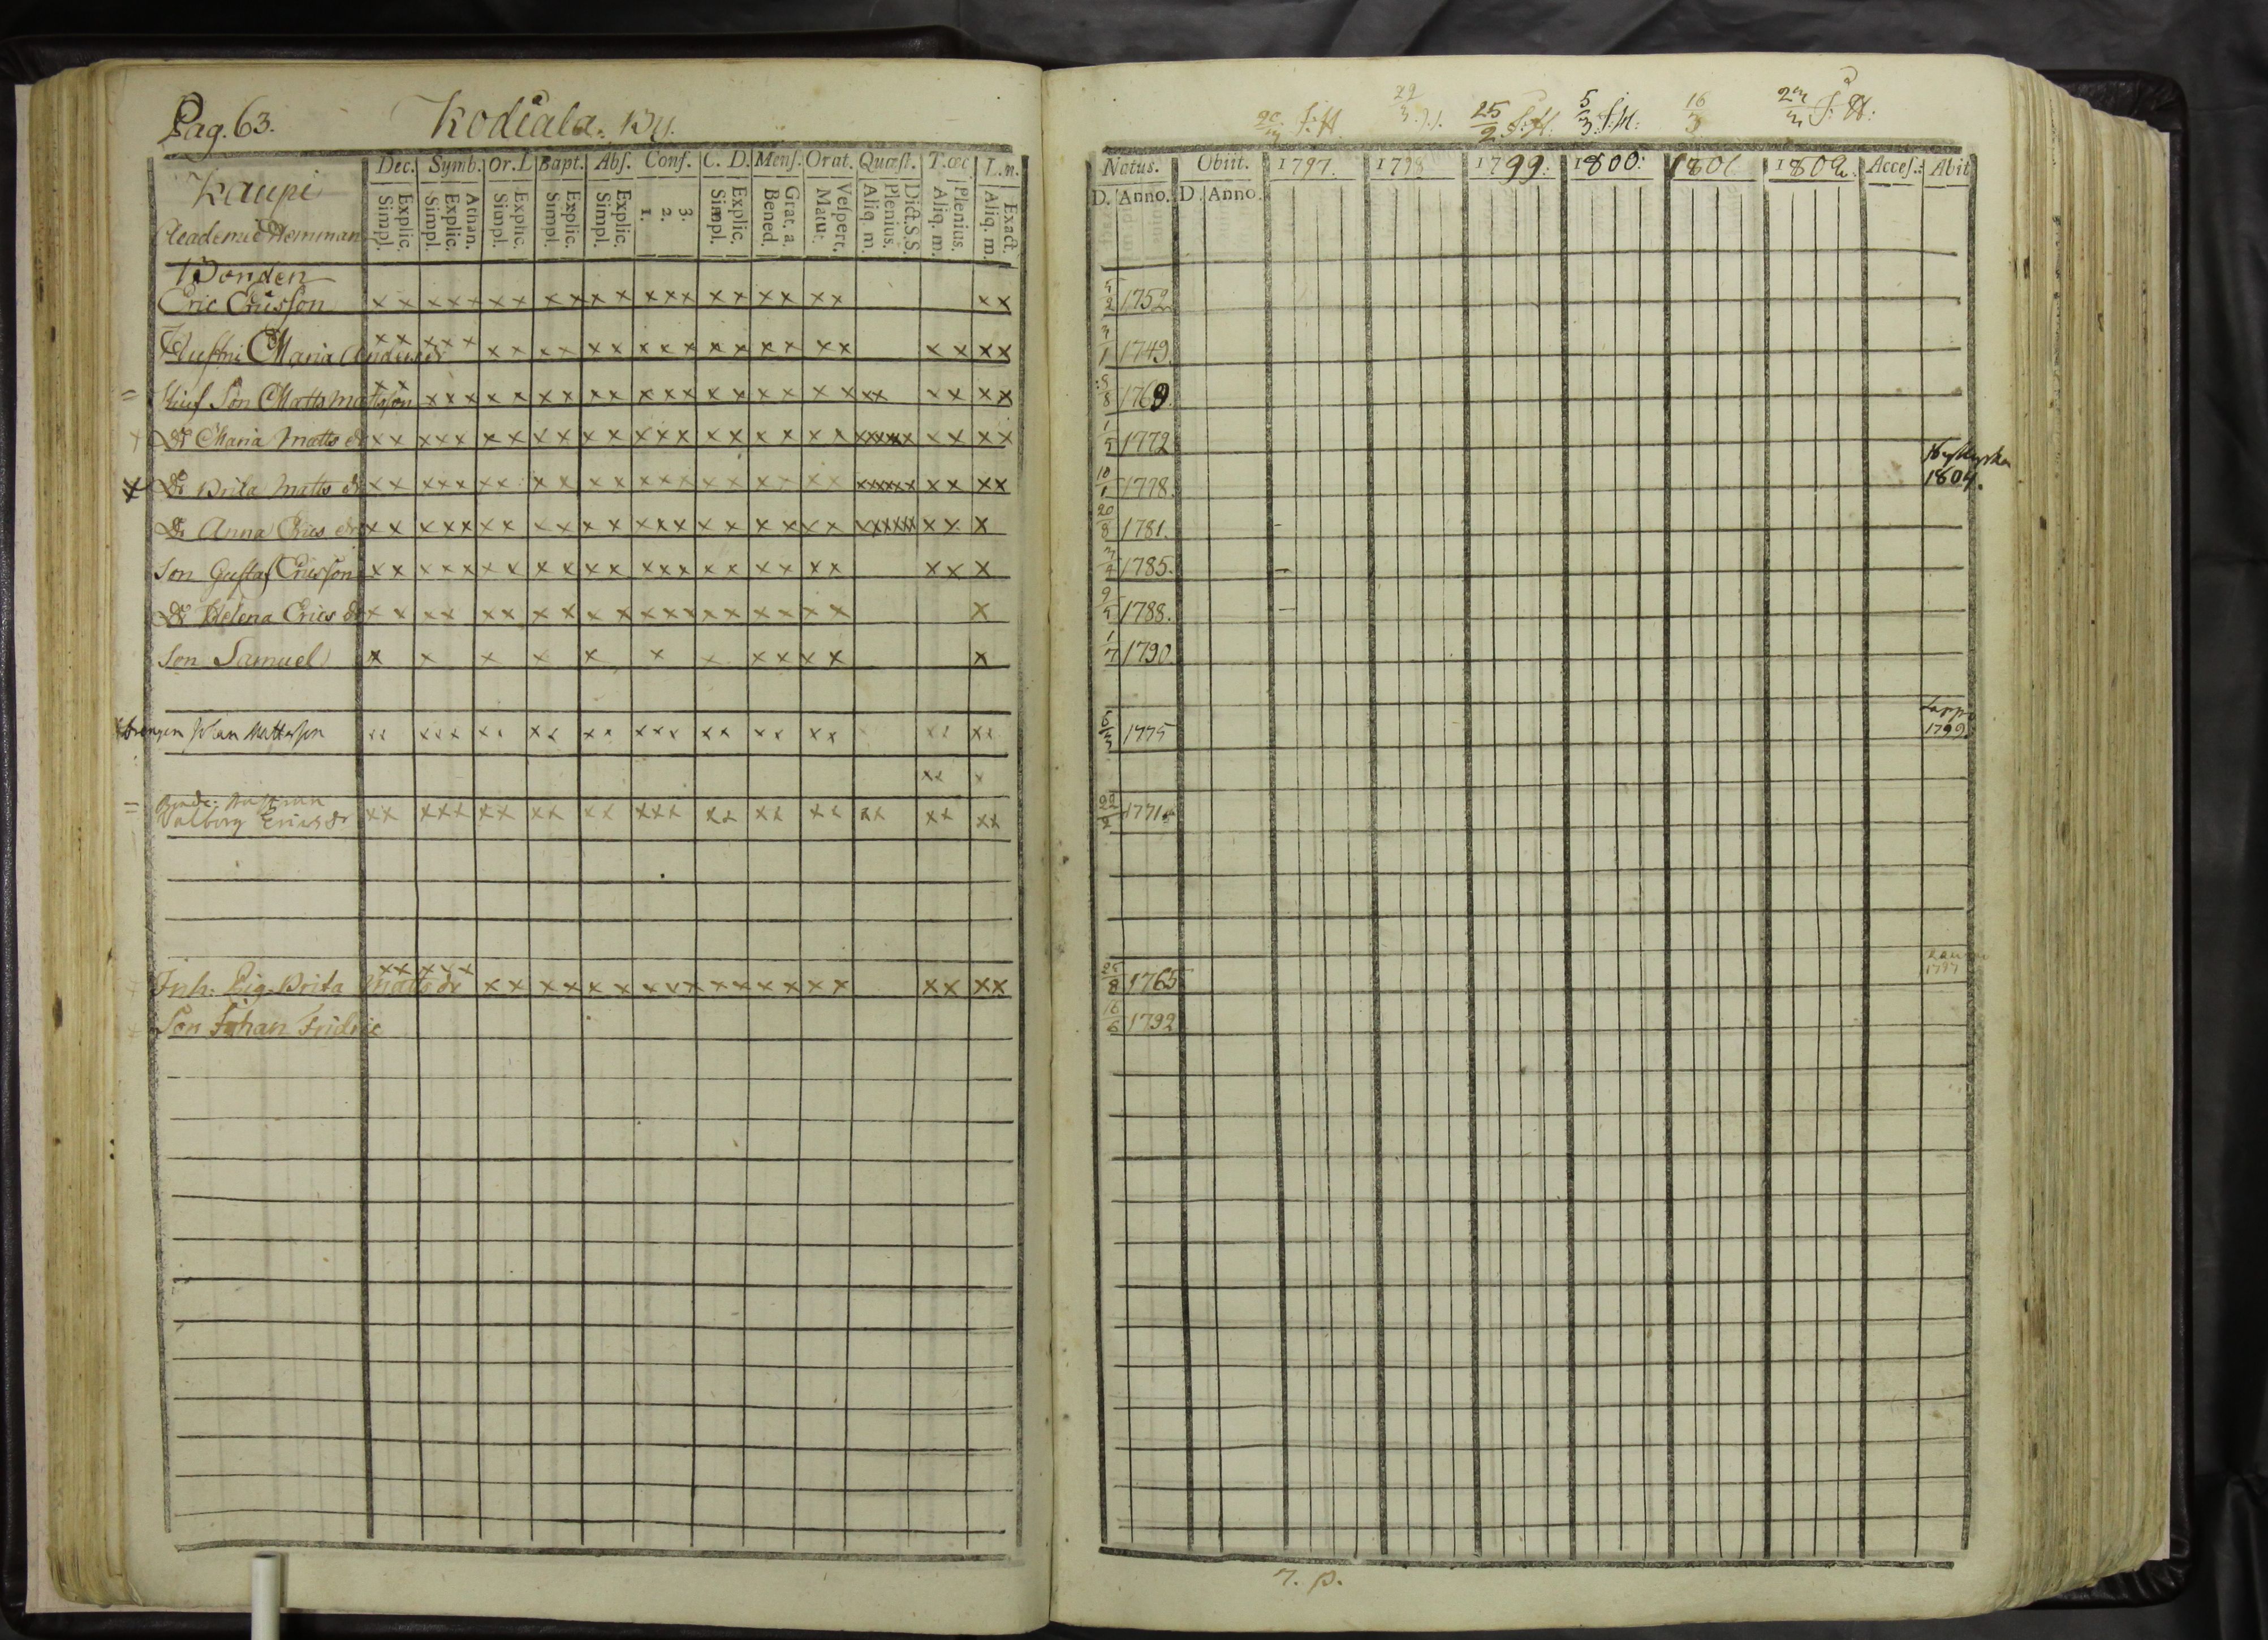 Pag. 63. Kodiala. by.
Kaupi
Academie Hemman
Dec. Symb. Or.L Bapt. Abs. Conf. C. D. Mens. Orat. Quæst. T.œc L.n.
Explic. Simpl. Athan. Explic. Simpl. Explic. Simpl. Explic. Simpl. Explic. Simpl. 3. 2. 1. Explic. Simpl. Grat. a. Bened. Vespert. Matut. Dict.S.S. Plenius. Aliq. m. Plenius. Aliq. m. Exact. Aliq. m.
Bonden
Eric Ericsson x x x x x x x x x x x x x x x x x x x x x x
Hustru Maria Anders dr x x x x x x x x x x x x x x x x x x x x x x x x
= Son Matts Mattsson x x x x x x x x x x x x x x x x x x x x x x x x x x
Dr Maria Matts dr x x x x x x x x x x x x x x x x x x x x xxxxxx x x x x
x Dr Brita Matts dr x x x x x x x x x x x x x x x x x x x x xxxxxx x x x x
Dr Anna Erics dr x x x x x x x x x x x x x x x x x x x x xxxxxx x x x
Son Gustaf Ericsson x x x x x x x x x x x x x x x x x x x x x x x
Dr Helena Erics dr x x x x x x x x x x x x x x x x x x x x
Son Samuel x x x x x x x x x x x x
Drengen Johan Mattsson x x x x x x x x x x x x x x x x x x x x x x x x
x x x
= Hustrun
Valborg Ericsdr x x x x x x x x x x x x x x x x x x x x x x x x x x
Inh. Pig. Brita Matts dr x x x x x x x x x x x x x x x x x x x x x x x x
Son Johan Fridric
20/3 J:H 22/3 25/2 J:H: 5/3 J:H: 16/3 J:H:
Natus. Obiit. 1797. 1798 1799. 1800: 1801 1802. Acces.: Abit
D. Anno. D. Anno.
5/2 1752
3/1 1749.
1769.
1/5 1772
10/1 1778. Nykyrka
1804.
20/8 1781.
1785.
9/5 1788.
1/7 1790
1775 Lappo
1799.
1771
1765 1797
16/6 1792
7. p.